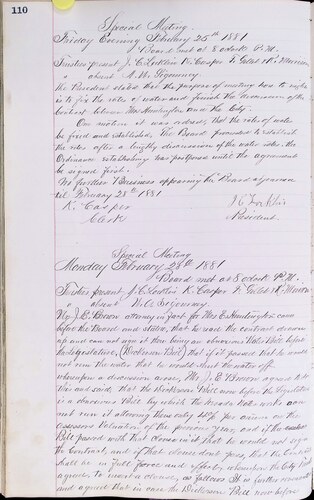 110
Special Meeting
Friday Evening February 25th 1881
Board met at 8 oclock P.M.
Trustees present J. C. K. Casper
" absent
The President stated that the purpose of meeting here to night
is to fix the rates of water and finish the discussion of the
contract between the Huntington and the City.
On motion it was ordered, that the rates of water
be fixed and established. The Board proceeded to establish
the rates after a lengthy discussion of the water rates. An
Ordinance was postponed until the agreement
be signed first.
No further Business appearing the Board adjourned
til February 28th 1881
K. Casper
Clerk
President
Special Meeting
Monday February 28th 1881
Board met at 8 oclock P.M.
Trustees present, J. C. K. Casper
" absent
Mr J. E. Brown attorney in fact for Mr Huntington came
before the Board and stated, that he read the contract drawn
up and can not sign it there being an obnoxious Water Bill before
the Legislature, that if it passed that he would
not run the risk that he would shut the water off.
whereupon a discussion arose, Mr J. E. Brown against the
Bill and said, that the Bill now before the Legislature
is a dangerous Bill by which the Water Works can
not run it allowing them only per annum on the
assessors Valuation of the previous year, and if the
Bill passed with that clause in it that he would not sign
the Contract, and if that clause dont pass, that the Contract
shall be in full force and effect, whereupon the City
agreed to insert a clause, as follows It is further
and agreed that in case the Bill now before